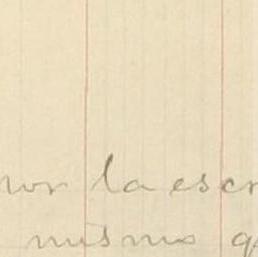 por la escr
mismo q